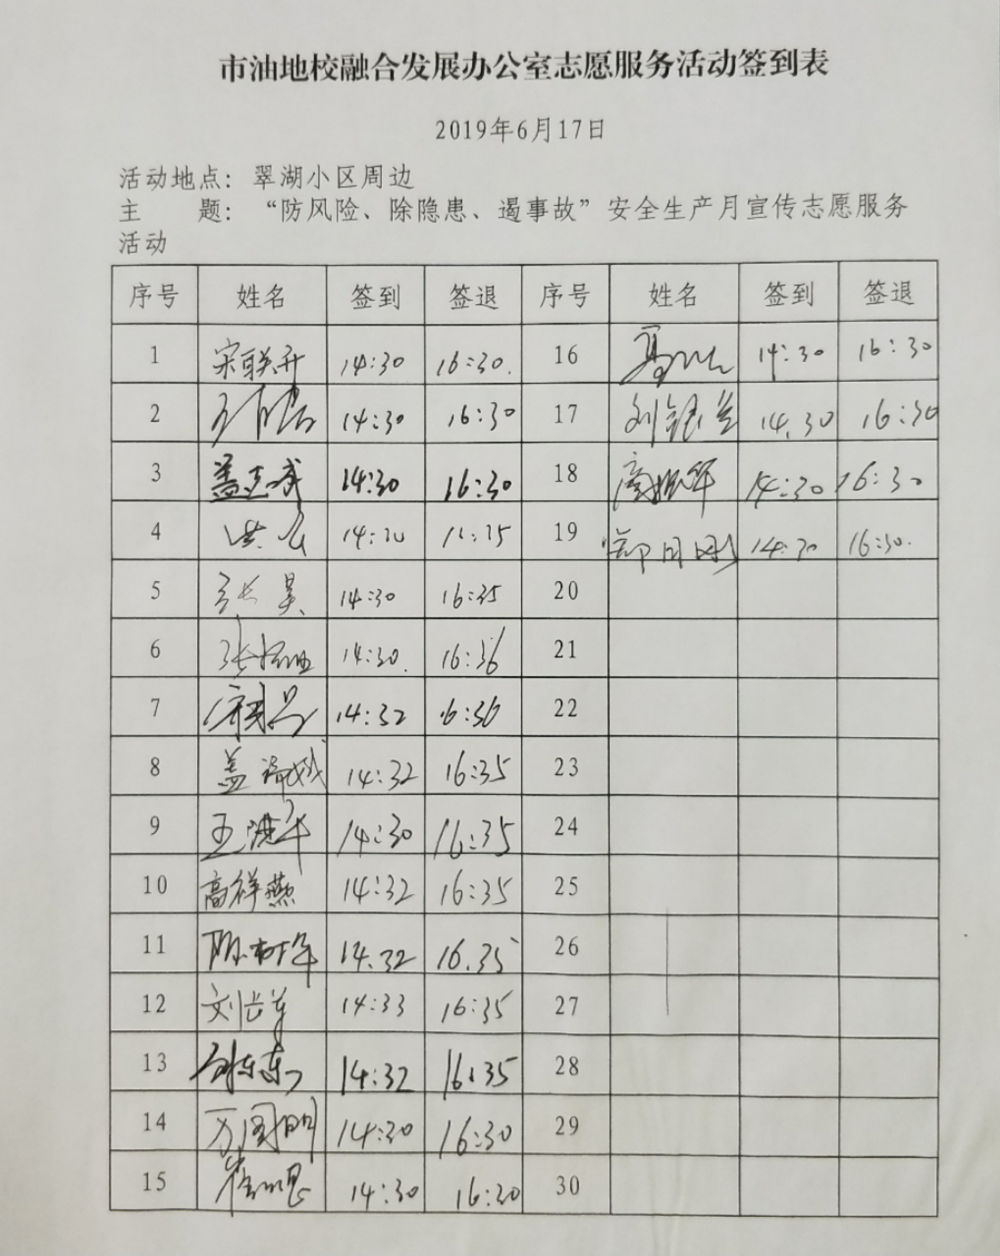 市油地校融合发展办公室志愿服务活动签到表
2019年6月17日
活动地点：翠湖小区周边
主 题：“防风险、除隐患、遏事故”安全生产月宣传志愿服务
活动
序号 姓名 签到 签退 序号 姓名 签到 签退
1 宋联升 14:30 16:30. 16 14:30 16:30
2 14:30 16:30 17 刘银兰 14.30 16:30
3 盖志武 14:30 16:30 18 高振华 14:30 16:30
4 洪 14:30 19 14:30 16:30.
5 张昊 14:30 16:35 20
6 张 14:30. 16:36 21
7 14:32 6:36 22
8 盖 14:32 16:35 23
9 王洪军 14:30 16:35 24
10 高祥燕 14:32 16:35 25
11 14.32 16.35 26
12 刘 14:33 16:35 27
13 14:32 16:35 28
14 万国明 14:30 16:30 29
15 14:30 16:30 30